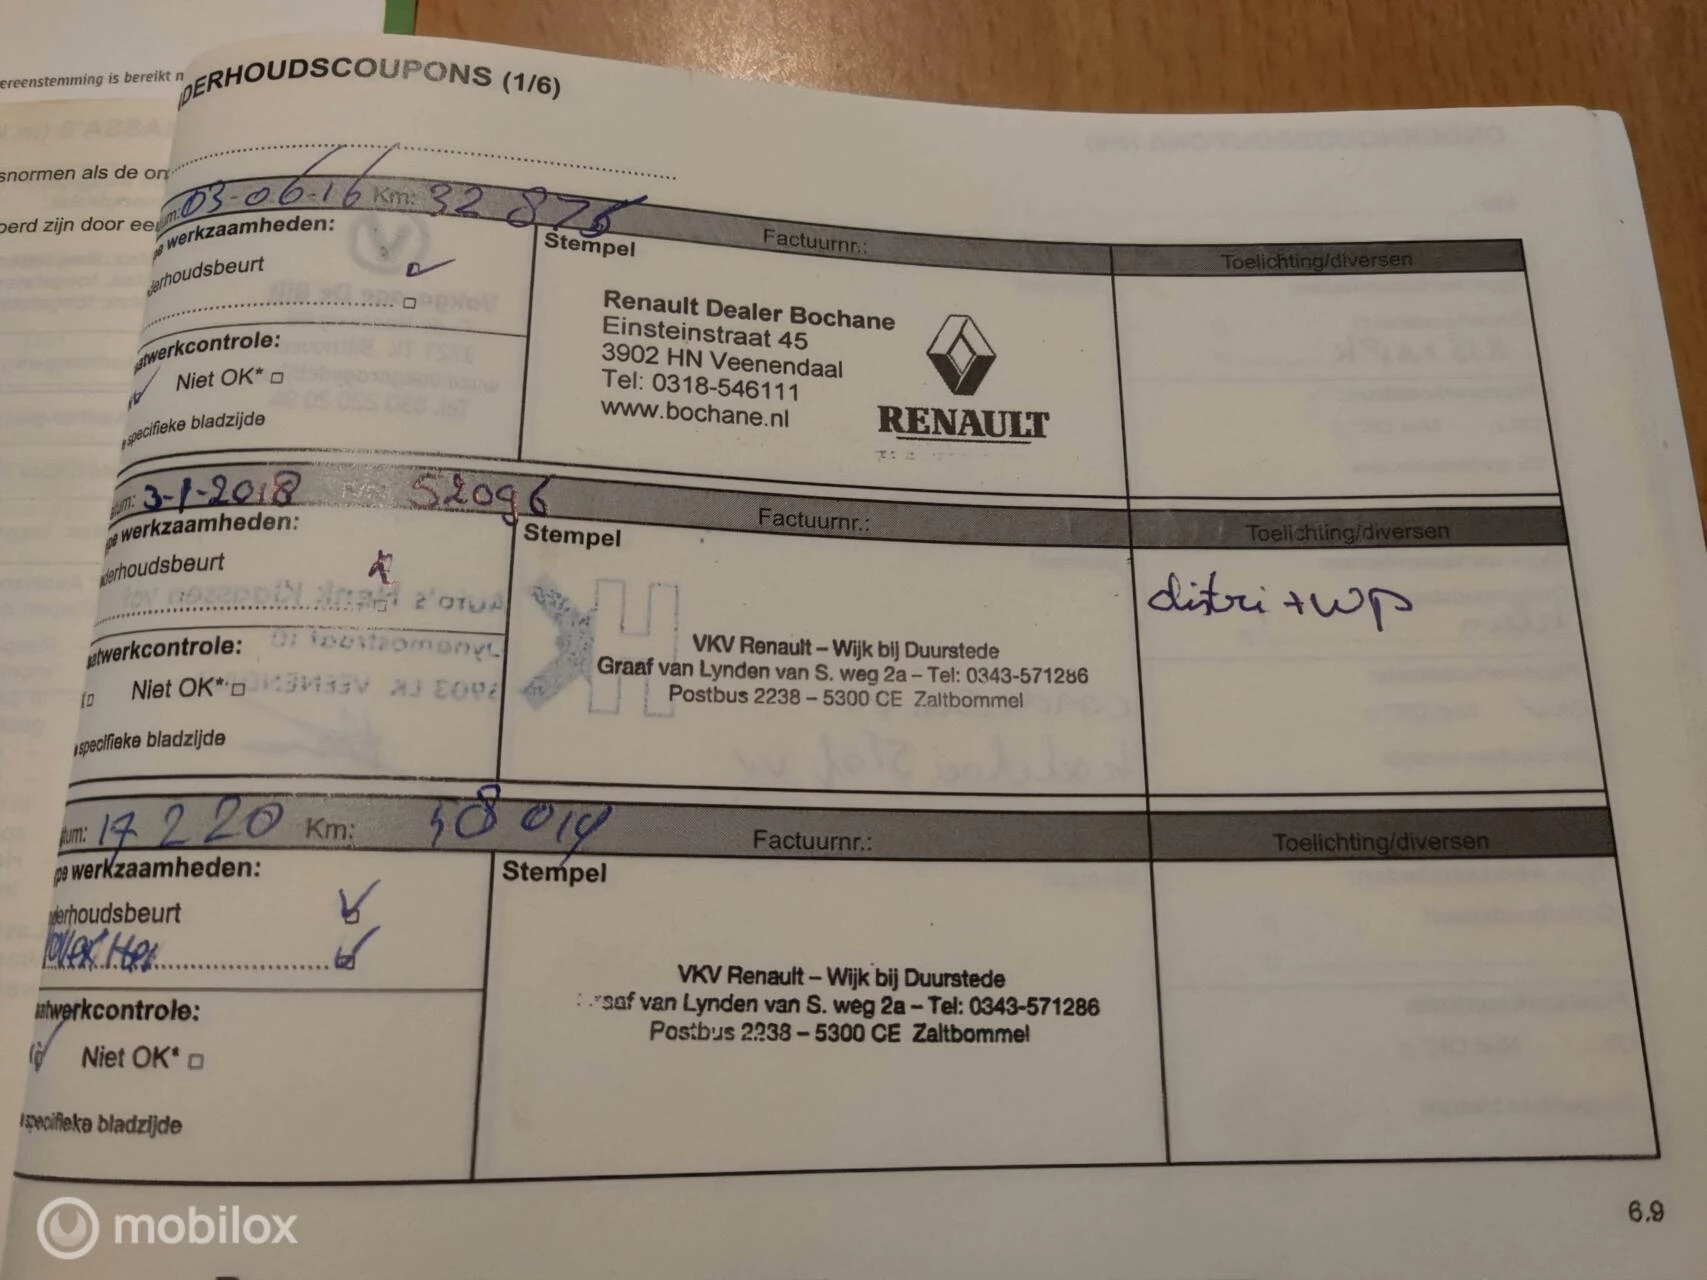 ereenstemming is bereikt
snormen als de on
oerd zijn door ee
DERHOUDSCOUPONS (1/6)
um: 03-06-16 Km: 32 875
Factuurnr.:
Toelichting/diversen
pe werkzaamheden:
derhoudsbeurt
Stempel
Renault Dealer Bochane
Einsteinstraat 45
3902 HN Veenendaal
Tel: 0318-546111
www.bochane.nl
RENAULT
atwerkcontrole:
Niet OK*
specifieke bladzijde
tum: 3-1-2018 Km: 52096
Factuurnr.:
Toelichting/diversen
pe werkzaamheden:
derhoudsbeurt
Stempel
distri + wp
VKV Renault – Wijk bij Duurstede
Graaf van Lynden van S. weg 2a – Tel: 0343-571286
Postbus 2238 – 5300 CE Zaltbommel
atwerkcontrole:
Niet OK*
specifieke bladzijde
tum: 17 2 20 Km: 58 014
Factuurnr.:
Toelichting/diversen
ype werkzaamheden:
derhoudsbeurt
Stempel
VKV Renault – Wijk bij Duurstede
raaf van Lynden van S. weg 2a – Tel: 0343-571286
Postbus 2238 – 5300 CE Zaltbommel
atwerkcontrole:
Niet OK*
specifieke bladzijde
6.9
mobilox